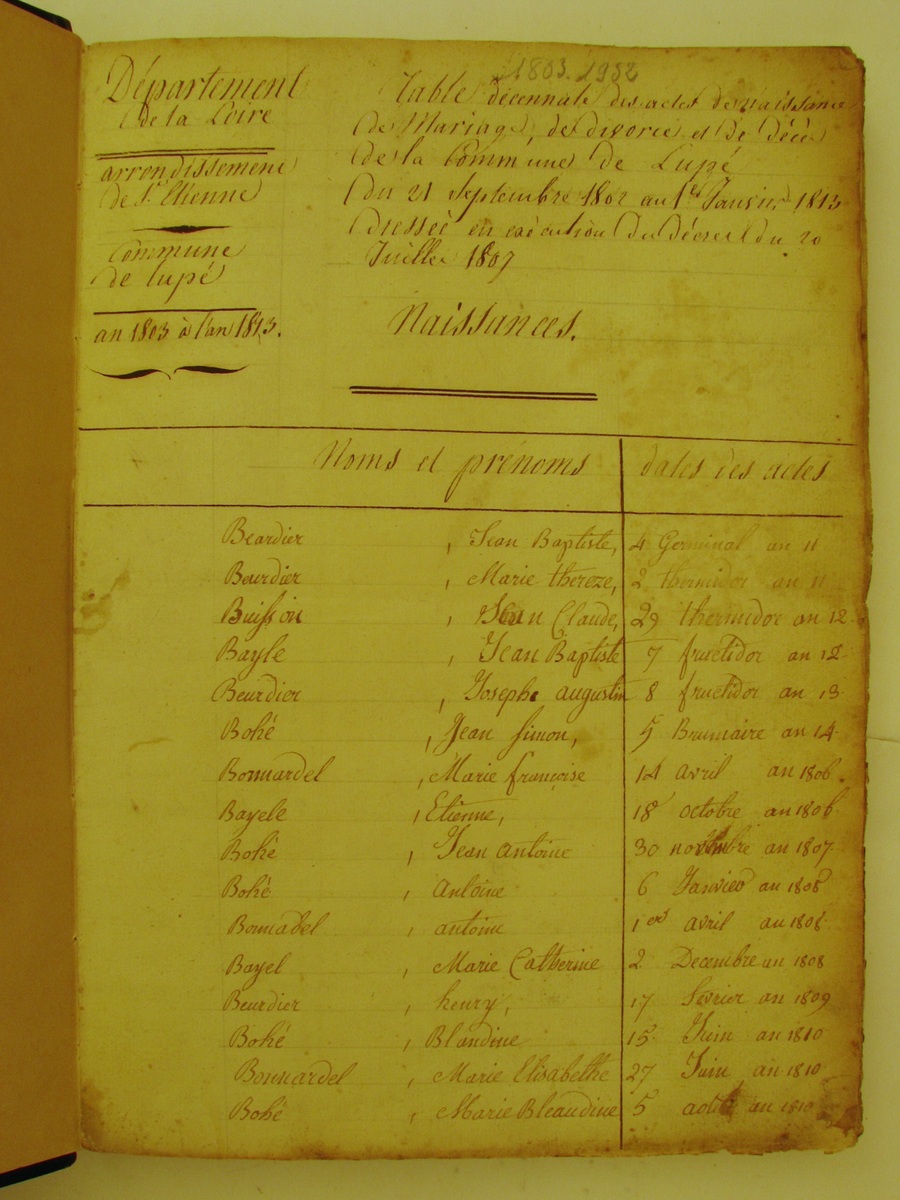 1803. 1952
Département
de la Loire
arrondissement
de St. Etienne
Commune
de Lupé
an 1803 à l'an 1813.
Table décennale des actes de naissance
de Mariage, de divorce et de Décè
de la Commune de Lupé
du 21 Septembre 1802 au 1er Janvier 1813
dressée en exécution du décret du 20
Juillet 1807
Naissances.
Noms et prénoms dates des actes
Beardier , Jean Baptiste, 4 Germinal an 11
Beurdier , Marie thereze, 2 thermidor an 11
Buisson , Jean Claude, 29 thermidor an 12
Bayle , Jean Baptiste 7 fructidor an 12
Beurdier , Joseph augustin 8 fructidor an 13
Bohé , Jean Simon, 5 Brumaire an 14
Bonnardel , Marie françoise 14 avril an 1806
Bayele , Etienne, 18 octobre an 1806
Bohé , Jean antoine 30 novembre an 1807
Bohé , Antoine 6 Janvier an 1808
Bonnadel , antoine 1er avril an 1808
Bayel , Marie Catherine 2 Decembre an 1808
Beurdier , henry, 17 fevrier an 1809
Bohé , Blandine 15 Juin an 1810
Bonnardel , Marie Elisabethe 27 Juin an 1810
Bohé , Marie Bleaudine 5 août an 1810